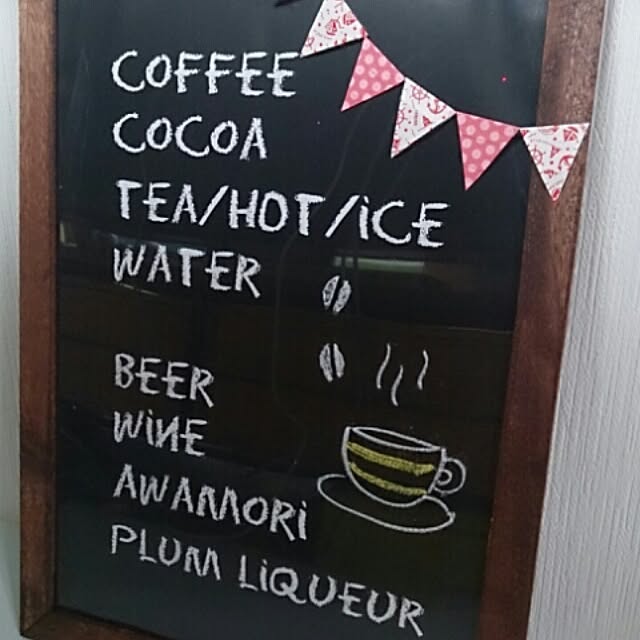 COFFEE
COCOA
TEA/HOT/iCE
WATER
BEER
WiNE
AWAMORi
PLUM LiQUEUR